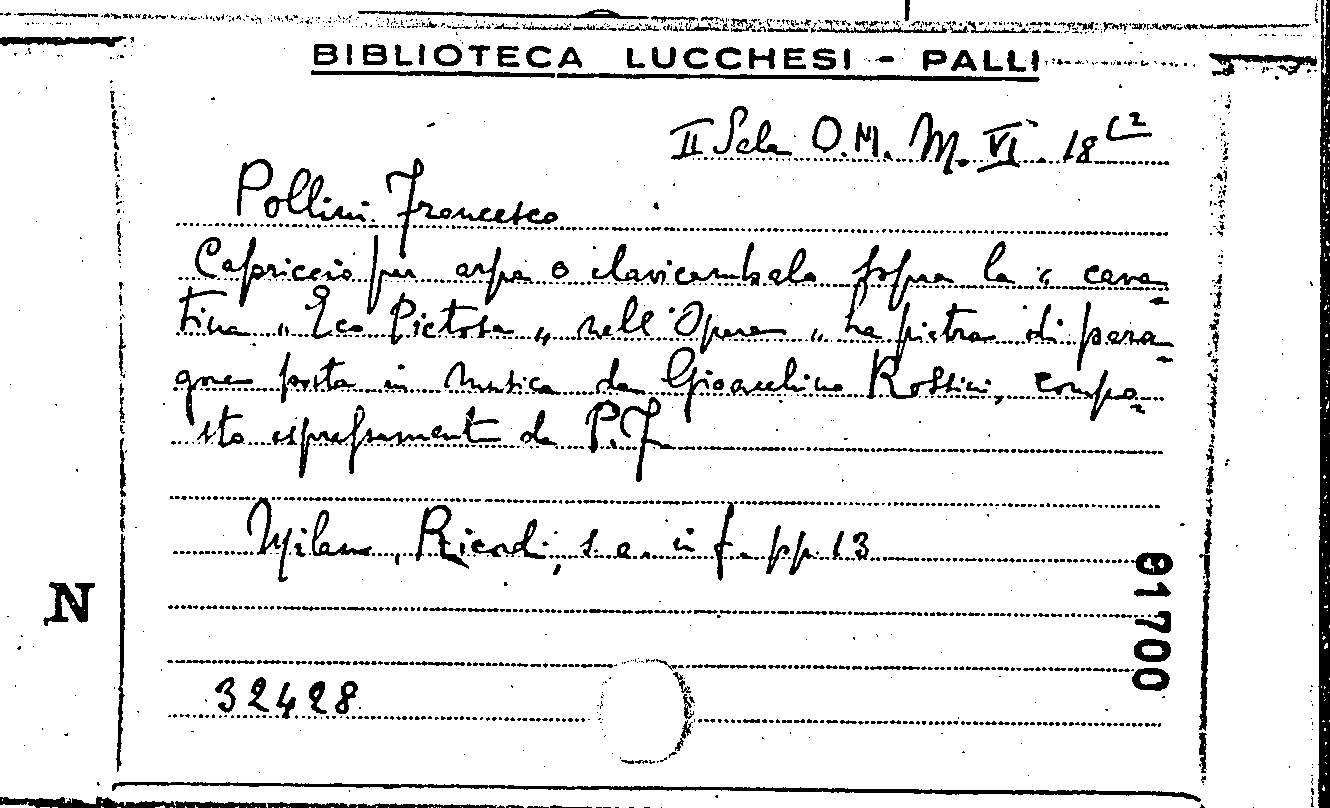 BIBLIOTECA LUCCHESI - PALLI
II Sala O.M. M. VI. 18 (2
Pollini Francesco
Capriccio per arpa o clavicembalo sopra la „ cava-
tina „ Eco Pietosa „ nell'Opera „ La pietra di para-
gone posta in musica da Gioacchino Rossini, compo-
sto espressament da P.F.
Milano, Ricordi, s. a. in f. pp. 13
N
01700
32428